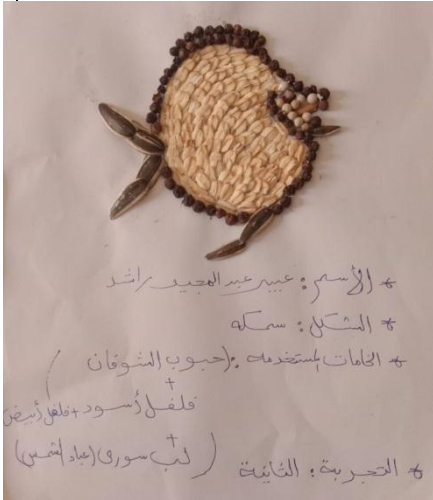 * الأسم : عبير عبد المجيد راشد
* الشكل : سمكه
* الخامات المستخدمه : (حبوب الشوفان
+
فلفل أسود + فلفل أبيض
+
لب سورى (عباد الشمس)
* التجربة : الثانية